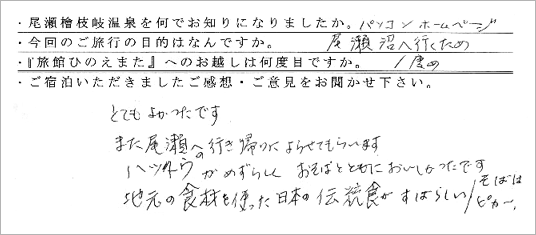 ・尾瀬檜枝岐温泉を何でお知りになりましたか。パソコンホームページ
・今回のご旅行の目的はなんですか。 尾瀬沼へ行くため
・『旅館ひのえまた』へのお越しは何度目ですか。 1度め
・ご宿泊いただきましたご感想・ご意見をお聞かせ下さい。
とてもよかったです
また尾瀬への行き帰りによらせてもらいます
がめずらしく おそばとともにおいしかったです
地元の食材を使った日本の伝統食がすばらしい
そばは
ピカ一、